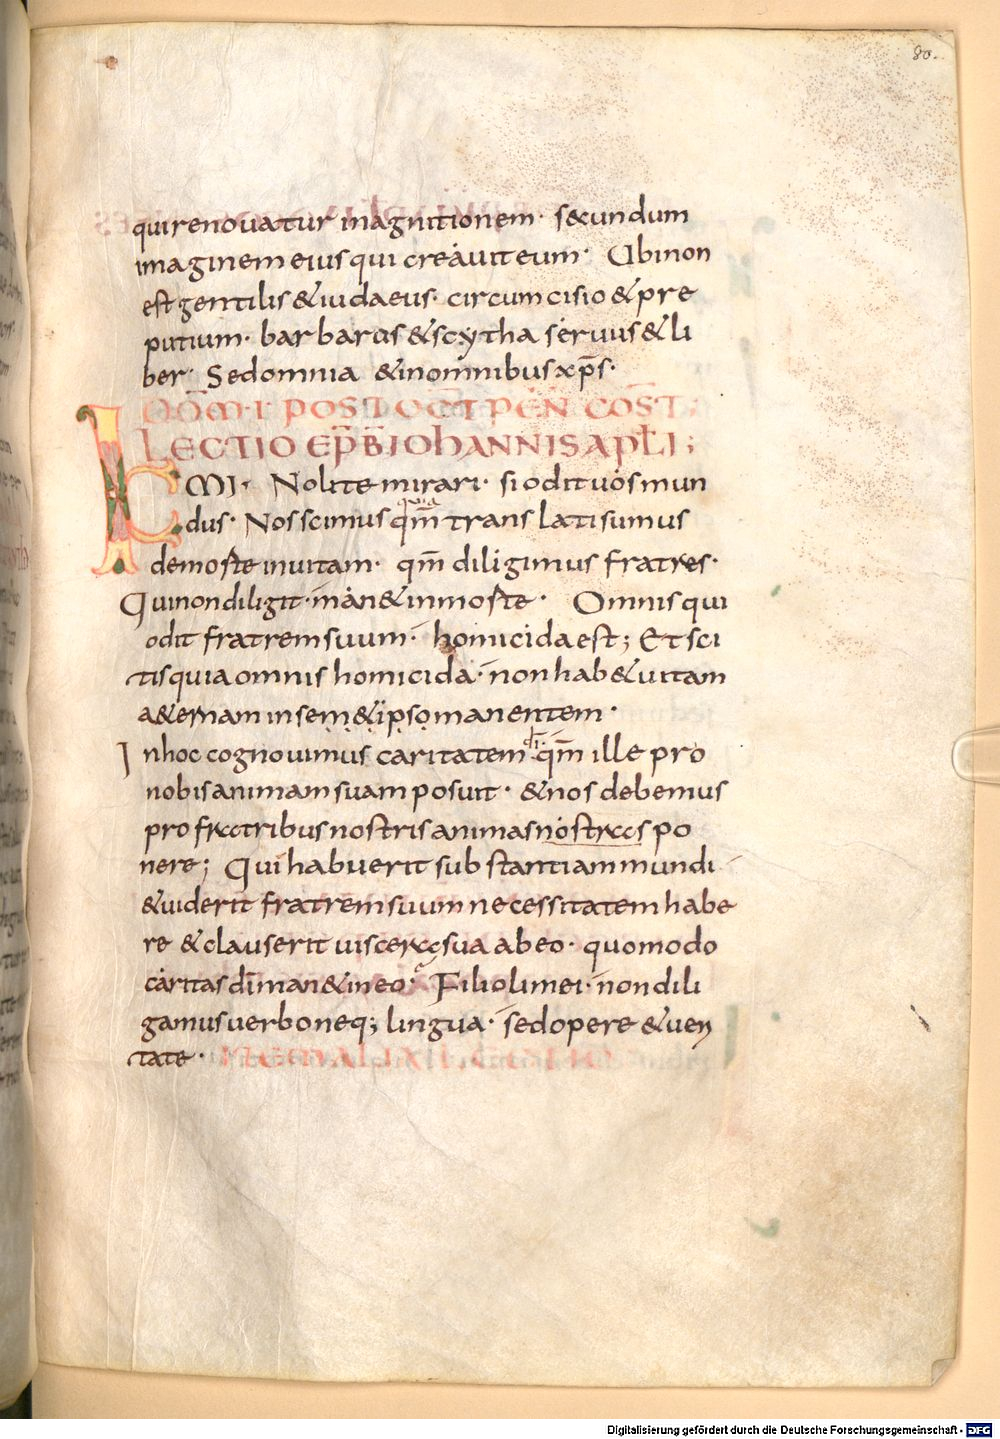 80.
qui renouatur inagnitionem· secundum
imaginem eius qui creauit eum· Ubi non
est gentilis & iudaeus· circumcisio & pre
putium· barbarus & scytha seruus & li
ber· Sed omnia & inomnibus xp̄s·
DŌM·I· POST OCT̄ PEN̄ COST̄
LECTIO EP̄ B̄ IOHANNIS APL̄I;
KMI· Nolite mirari· si odit uos mun
dus· Nos scimus qm̄ translati sumus
quia
demorte inuitam· qm̄ diligimus fratres·
Qui non diligit· man& inmorte· Omnis qui
odit fratrem suum· homicida est; Et sci
tis quia omnis homicida· non hab& uitam
a&ernam in sem&ipso manentem·
Inhoc cognouimus caritatem dī· qm̄ ille pro
nobis animam suam posuit· & nos debemus
pro fratribus nostris animas nostras po
nere; Qui habuerit substantiam mundi
& uiderit fratrem suum necessitatem habe
re & clauserit uiscera sua ab eo· quomodo
caritas dī man& in eo· Filioli mei· non dili
gamus uerbo neq; lingua· sed opere & ueri
tate·
Digitalisierung gefördert durch die Deutsche Forschungsgemeinschaft - DFG